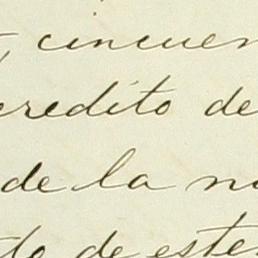 cincuen
eredito de
de la no
to de este